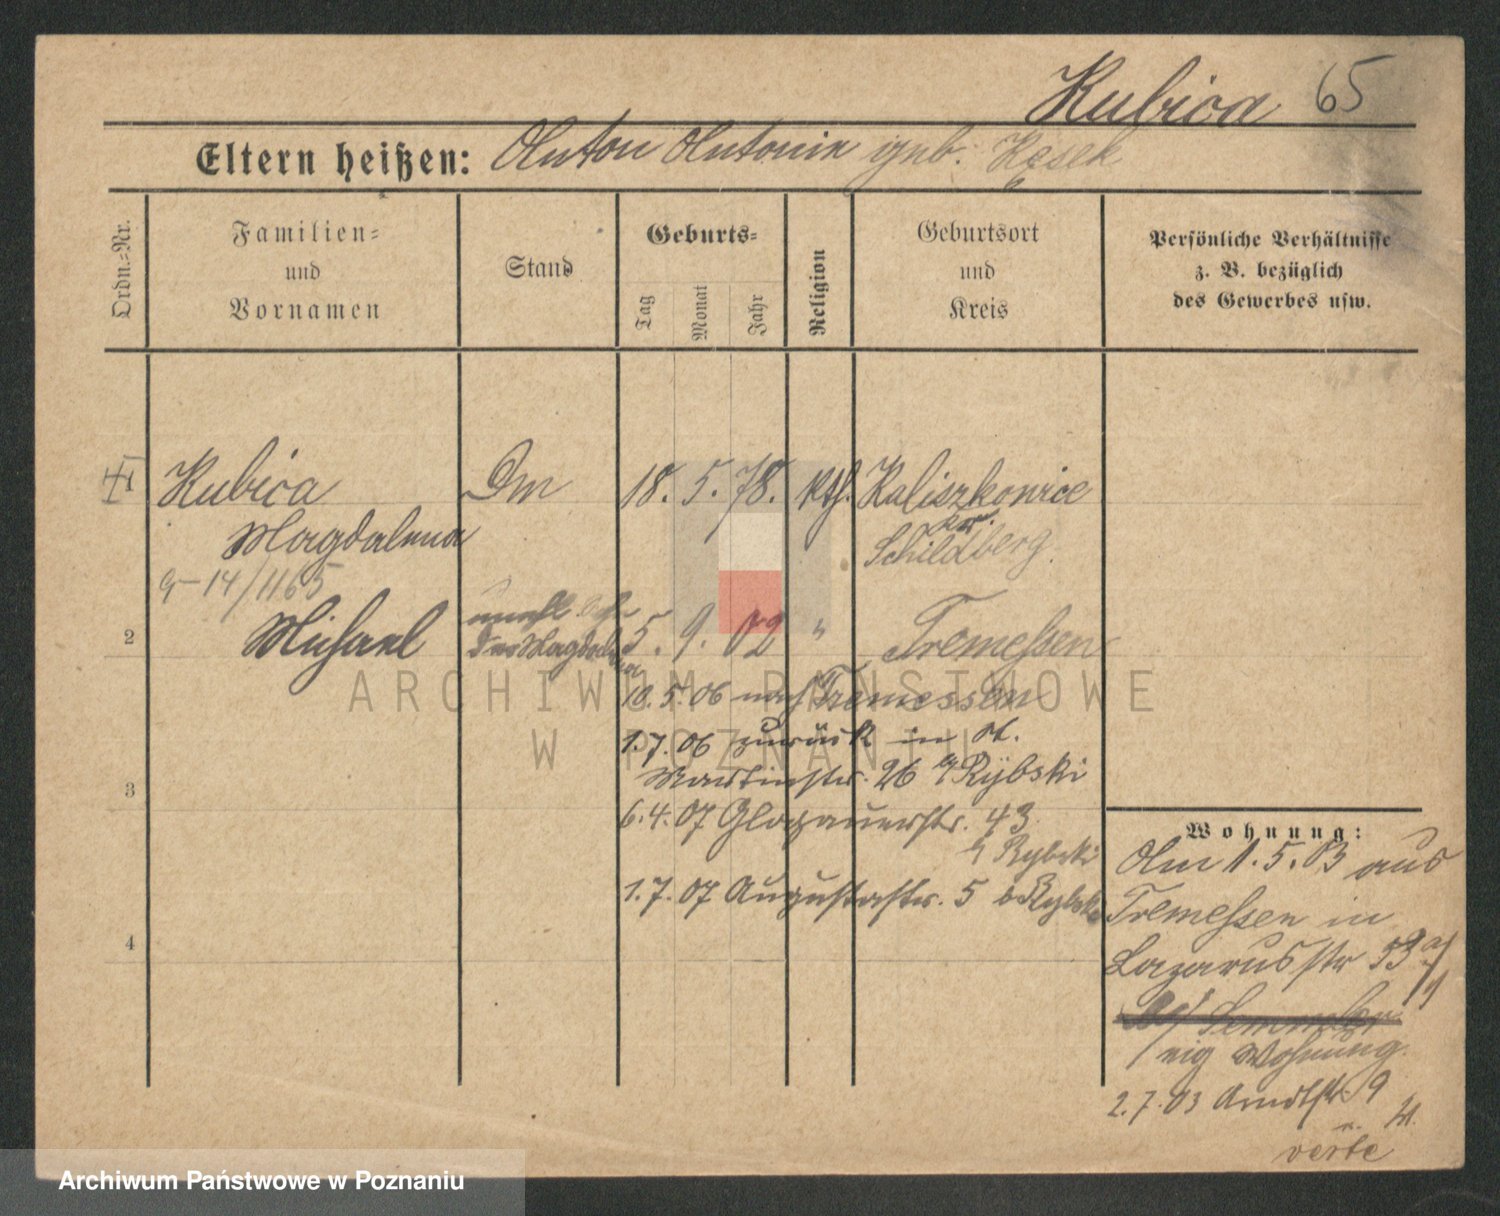 Kubica 65
Eltern heißen: Anton Antonie geb. Kasek
Ordn.-Nr.
Familien-
und
Vornamen
Stand
Geburts-
Tag
Monat
Jahr
Religion
Geburtsort
und
Kreis
Persönliche Verhältnisse
z. B. bezüglich
des Gewerbes usw.
1 Kubica
Magdalena
18. 5. 78. kth. Kaliszkowice
Kr.
Schildberg.
G-14/1165
2 Michael
unehl.
der Magdalena
5. 9. 02 " Tremessen
18.5.06 nach Tremessen
1.7.06 zurück in St.
Martinstr. 26 b/ Rybski
3
6.4.07 Glogauerstr. 43
b/ Rybski
1.7.07 Augustastr. 5 b Rybski
4
Wohnung:
Am 1.5.03 aus
Tremessen in
Lazarusstr 53
eig Wohnung.
2.7.03 Arndtstr. 9
verte
ARCHIWUM PAŃSTWOWE
W POZNANIU
Archiwum Państwowe w Poznaniu